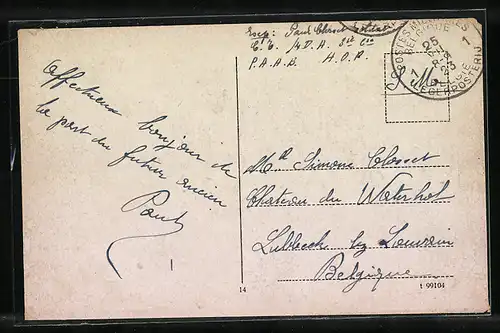 Exp: Paul
C.C. 4 D.A. 3
P.A.A.B. A.O.B.
POSTES MILITAIRES 1
BELGIQUE
25
23
BELGIE
LEGERPOSTERIJ 1
S. M.
Affectueux bonjour de
la part du futur ancien
Paul
Mr Simone Closset
Chateau du Waterhof
Lubbeek lez Louvain
Belgique
14
t 99104